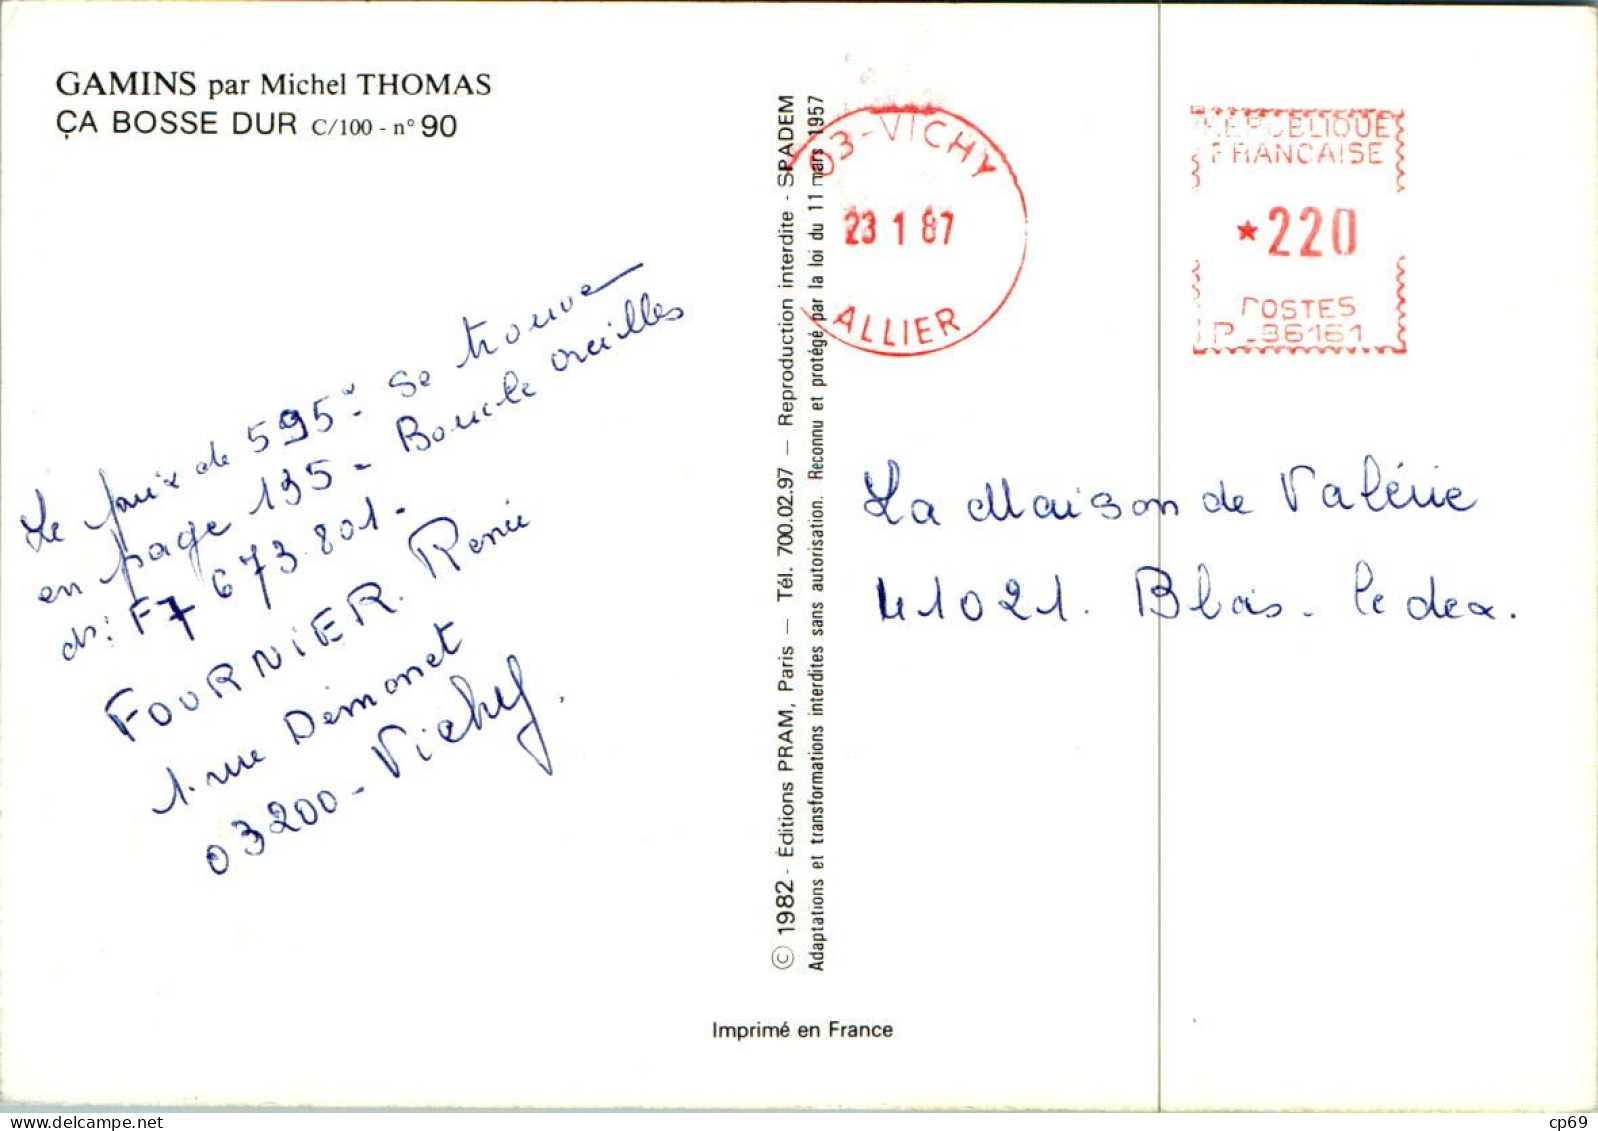 GAMINS par Michel THOMAS
ÇA BOSSE DUR C/100 - n° 90
Le prix de 595 se trouve
en page 135 - Boucle oreilles
ds: F7 673.801.
FOURNIER. Renée
1. rue Démonet
03200 - Vichy.
© 1982 - Éditions PRAM, Paris — Tél. 700.02.97 — Reproduction interdite - SPADEM
Adaptations et transformations interdites sans autorisation. Reconnu et protégé par la loi du 11 mars 1957
Imprimé en France
03-VICHY
23 1 87
ALLIER
REPUBLIQUE
FRANCAISE
*220
POSTES
P_96161
La Maison de Valérie
41021. Blois. Cedex.
cp69